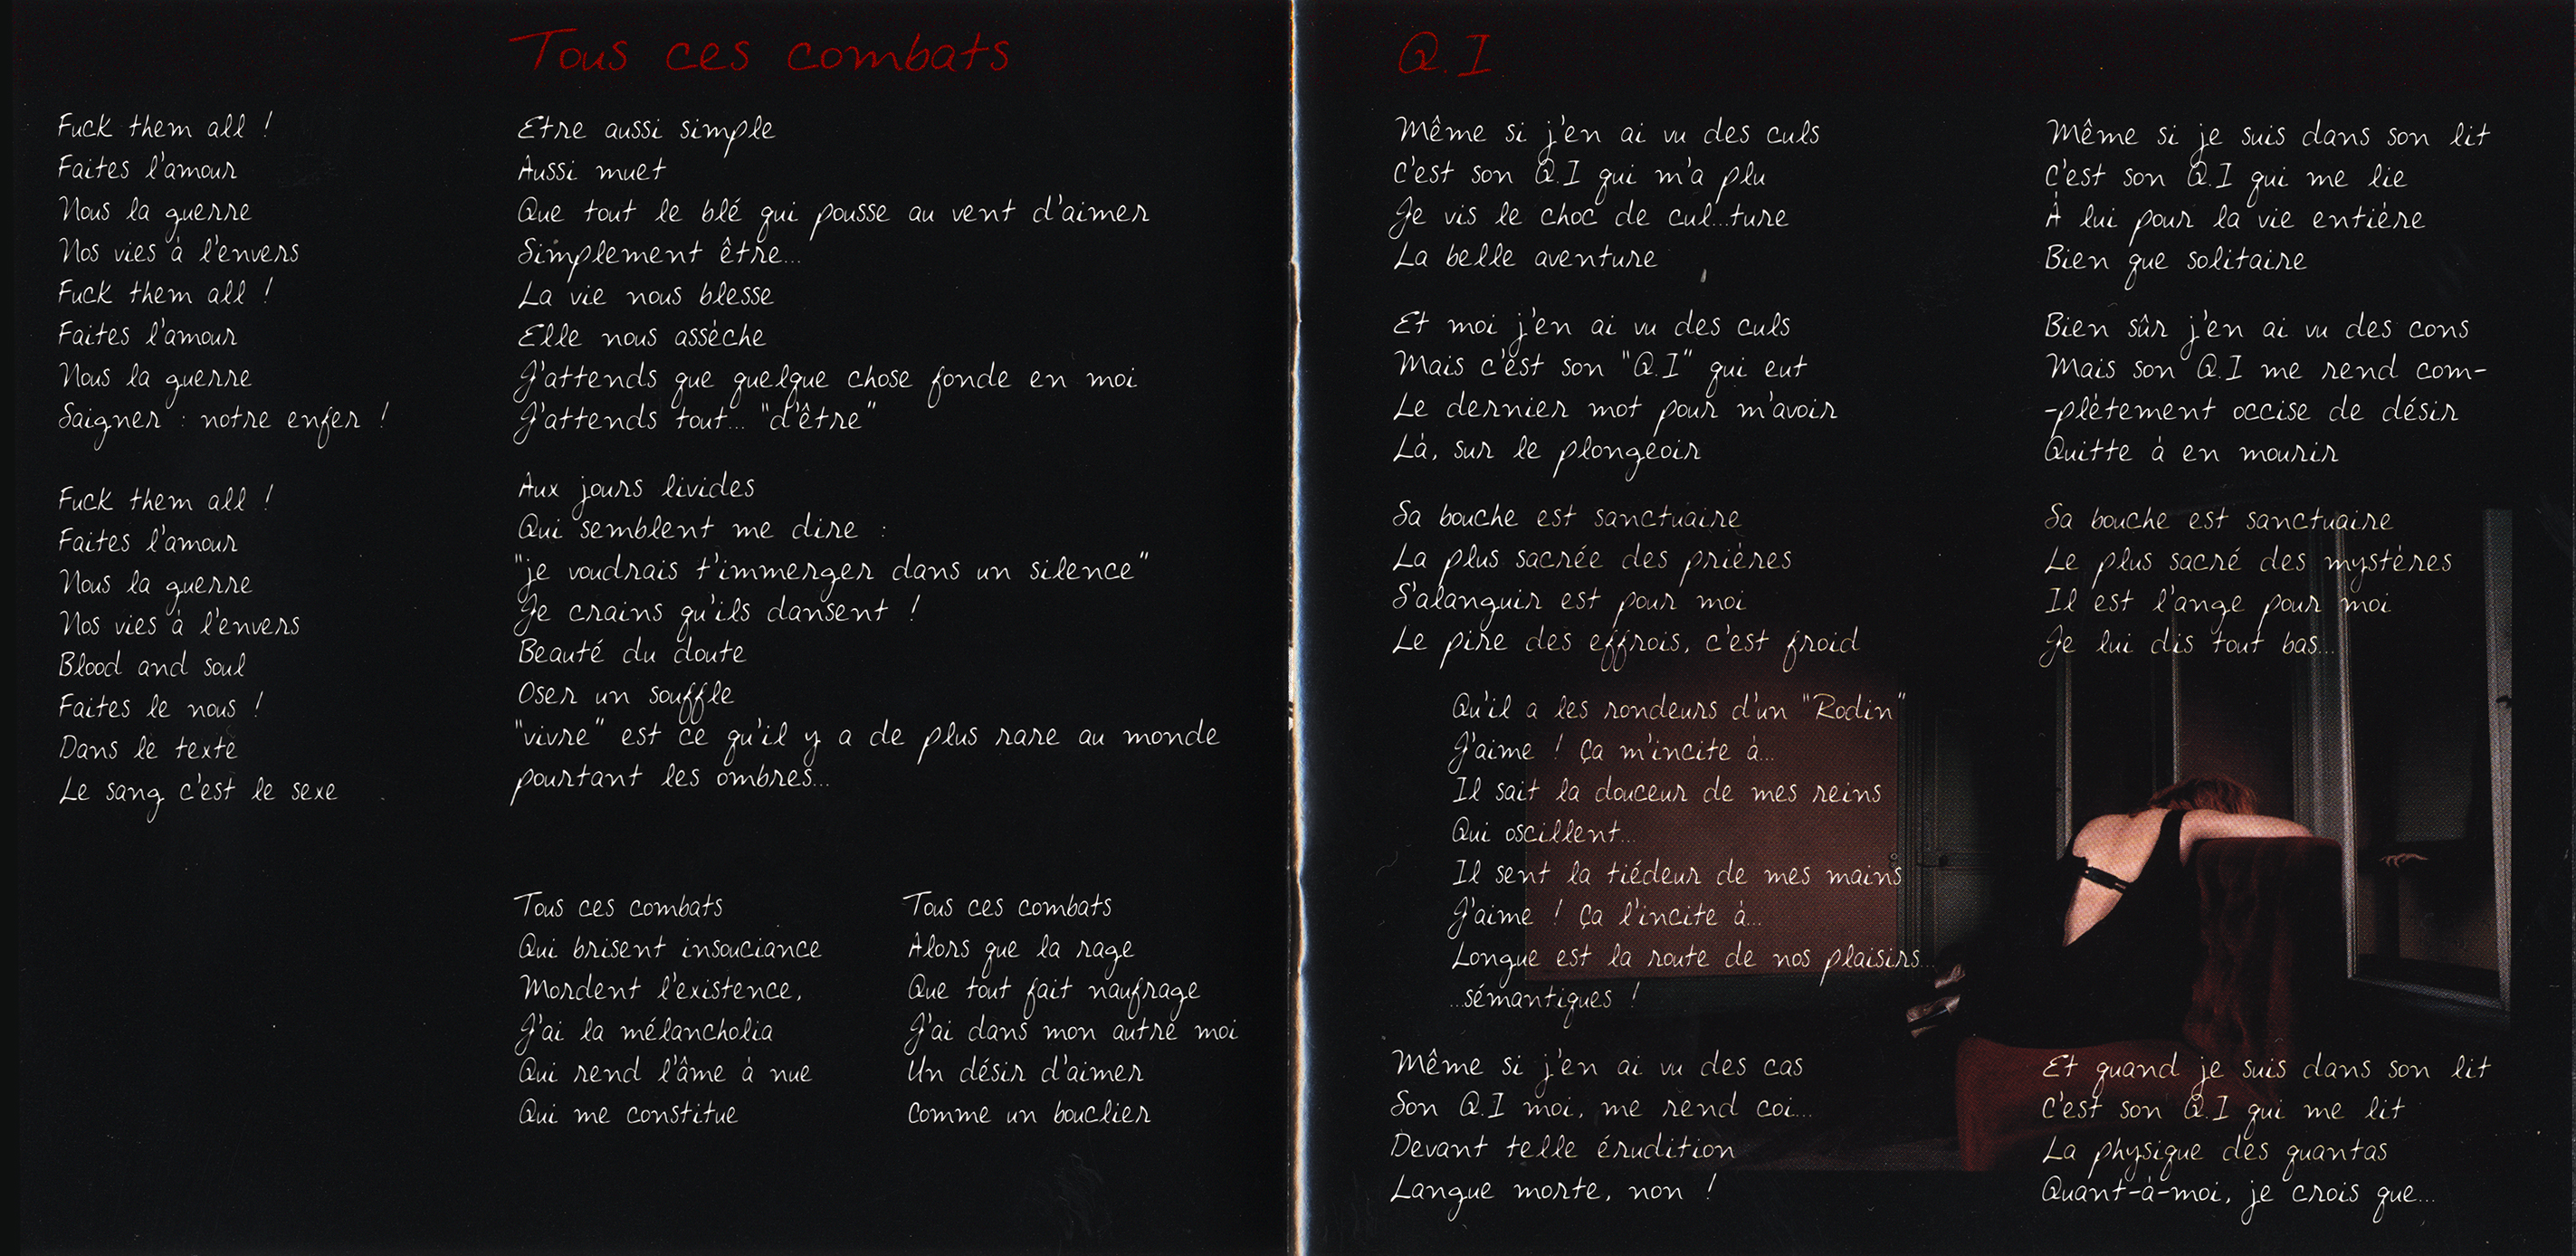 Fuck them all !
Faites l'amour
Nous la guerre
Nos vies à l'envers
Fuck them all !
Faites l'amour
Nous la guerre
Saigner : notre enfer !
Fuck them all !
Faites l'amour
Nous la guerre
Nos vies à l'envers
Blood and soul
Faites le nous !
Dans le texte
Le sang c'est le sexe
Tous ces combats
Etre aussi simple
Aussi muet
Que tout le blé qui pousse au vent d'aimer
Simplement être...
La vie nous blesse
Elle nous assèche
J'attends que quelque chose fonde en moi
J'attends tout... "d'être"
Aux jours livides
Qui semblent me dire :
"je voudrais t'immerger dans un silence"
Je crains qu'ils dansent !
Beauté du doute
Oser un souffle
"vivre" est ce qu'il y a de plus rare au monde
pourtant les ombres...
Tous ces combats
Qui brisent insouciance
Mordent l'existence,
J'ai la mélancholia
Qui rend l'âme à nue
Qui me constitue
Tous ces combats
Alors que la rage
Que tout fait naufrage
J'ai dans mon autre moi
Un désir d'aimer
Comme un bouclier
Q.I
Même si j'en ai vu des culs
C'est son Q.I qui m'a plu
Je vis le choc de cul...ture
La belle aventure
Et moi j'en ai vu des culs
Mais c'est son "Q.I" qui eut
Le dernier mot pour m'avoir
Là, sur le plongeoir
Sa bouche est sanctuaire
La plus sacrée des prières
S'alanguir est pour moi
Le pire des effrois, c'est froid
Qu'il a les rondeurs d'un "Rodin"
J'aime ! Ça m'incite à...
Il sait la douceur de mes reins
Qui oscillent...
Il sent la tiédeur de mes mains
J'aime ! Ça l'incite à...
Longue est la route de nos plaisirs...
...sémantiques !
Même si j'en ai vu des cas
Son Q.I moi, me rend coi...
Devant telle érudition
Langue morte, non !
Même si je suis dans son lit
C'est son Q.I qui me lie
À lui pour la vie entière
Bien que solitaire
Bien sûr j'en ai vu des cons
Mais son Q.I me rend com-
-plètement occise de désir
Quitte à en mourir
Sa bouche est sanctuaire
Le plus sacré des mystères
Il est l'ange pour moi
Je lui dis tout bas...
Et quand je suis dans son lit
C'est son Q.I qui me lit
La physique des quantas
Quant-à-moi, je crois que...